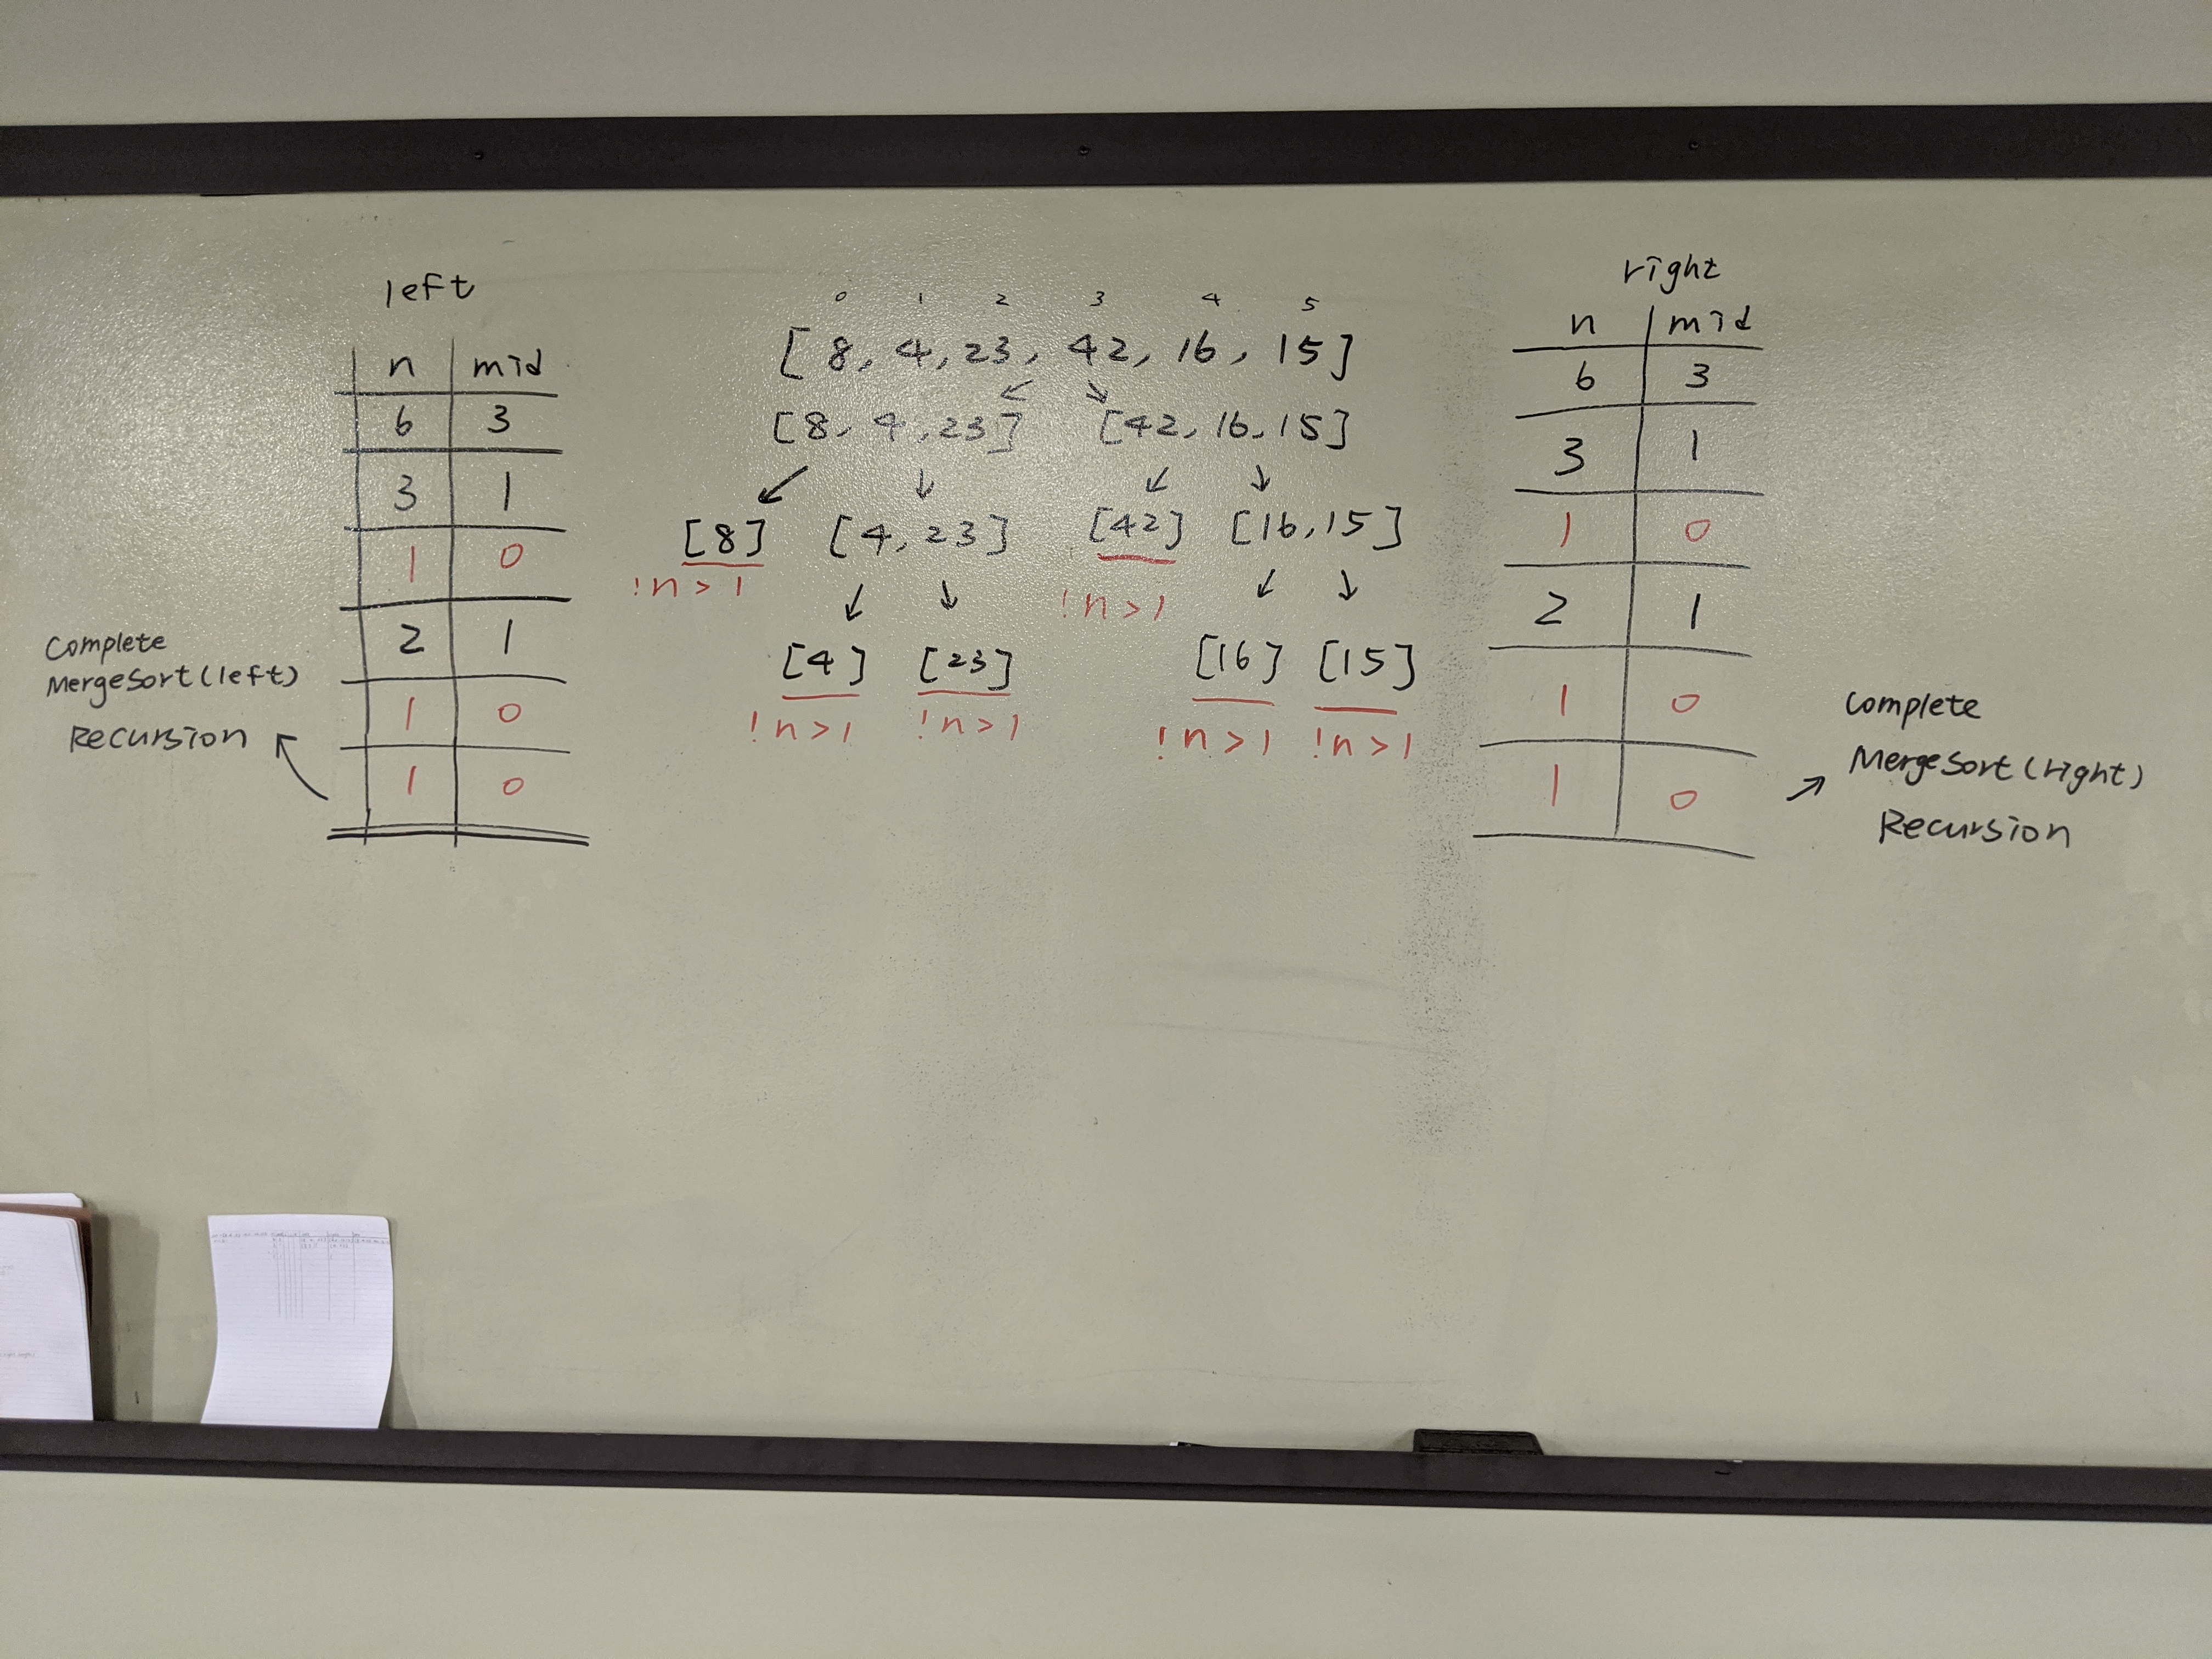 left
n mid
6 3
3 1
1 0
2 1
1 0
1 0
Complete
MergeSort(left)
Recursion
0 1 2 3 4 5
[8, 4, 23, 42, 16, 15]
[8, 4, 23] [42, 16, 15]
[8] [4, 23] [42] [16, 15]
!n>1 !n>1
[4] [23] [16] [15]
!n>1 !n>1 !n>1 !n>1
right
n mid
6 3
3 1
1 0
2 1
1 0
1 0
Complete
MergeSort(right)
Recursion